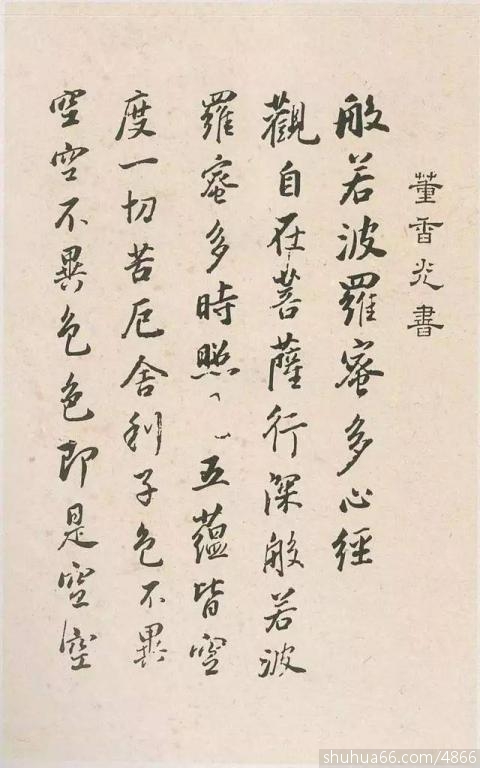 董香光書
般若波羅蜜多心經
觀自在菩薩行深般若波
羅蜜多時照五蘊皆空
度一切苦厄舍利子色不異
空空不異色色即是空空
shuhua66.com/4866